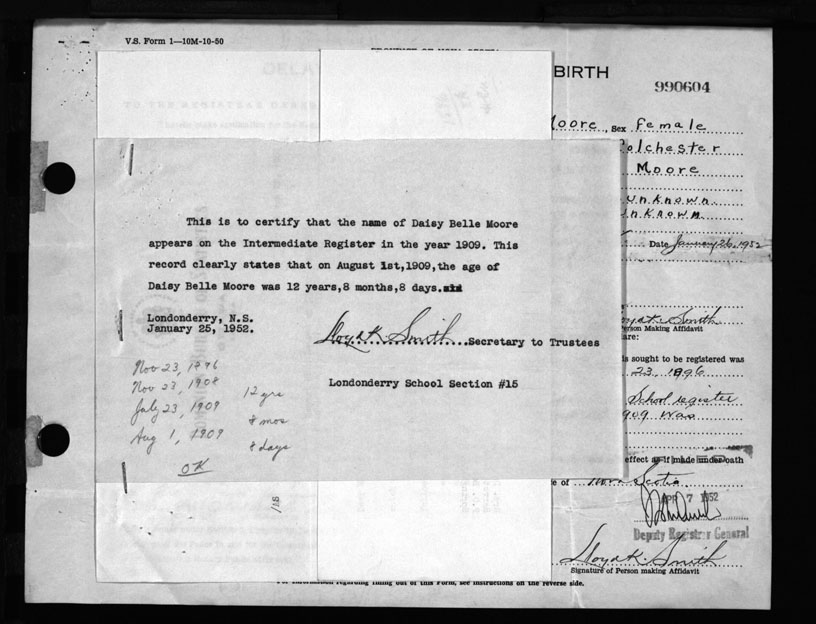 V.S. Form 1—10M-10-50
BIRTH
990604
Moore, Sex Female
Colchester
Moore
Unknown
Unknown
Date January 26, 1952
This is to certify that the name of Daisy Belle Moore
appears on the Intermediate Register in the year 1909. This
record clearly states that on August 1st,1909,the age of
Daisy Belle Moore was 12 years,8 months,8 days.
Londonderry, N.S.
January 25, 1952.
Lloyd K. Smith Secretary to Trustees
Londonderry School Section #15
Nov 23, 1896
Nov 23, 1908
12 yrs
July 23, 1909
8 mos
Aug 1, 1909
8 days
OK
/18
Lloyd K. Smith
Person Making Affidavit
are:
is sought to be registered was
23, 1896
School register
1909 was
effect as if made under oath
e of Nova Scotia
APR 7 1952
Deputy Registrar General
Lloyd K. Smith
Signature of Person making Affidavit
For information regarding filling out of this Form, see instructions on the reverse side.